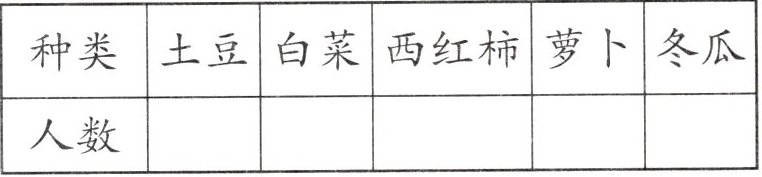 种类 土豆 白菜 西红柿 萝卜 冬瓜
人数